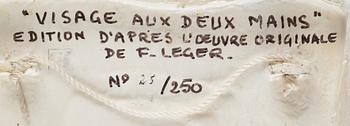 "VISAGE AUX DEUX MAINS"
EDITION D'APRÈS L'OEUVRE ORIGINALE
DE F-LEGER.
No 25/250